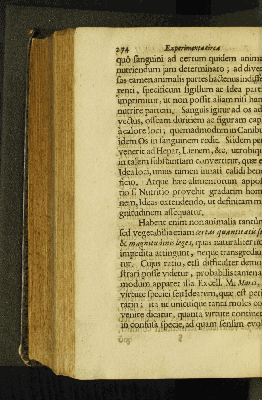 274 Experimenta circa
quò sanguini ad certum quidem anima
nutriendum jam determinato; ad diver
sas tamen animalis partes hactenus indiffe
renti, specificum sigillum ac Idea parti
imprimitur, ut non possit aliam nisi hanc
nutrire partem. Sanguis igitur ad os ad
vectus, osseam duritiem ac figuram cap
à calore loci; quemadmodum in Canibu
idem Os in sanguinem redit. Si idem per
venerit ad Hepar, Lienem, &c. utrobiqu
in talem substantiam convertitur, quæ e
Idea loci, unius tamen innati calidi bene
ficio. Atque hæc alimentorum appos
tio s. Nutritio provehit gradatim hom
nem, Ideas extendendo, ut definitam m
gnitudinem assequatur.
Habent enim non animalia tantùm
sed vegetabilia etiam certas quantitatis s
& magnitudinis leges, quas naturaliter in
impedita attingunt, neque transgrediu
tur. Cujus ratio, etsi difficulter demon
strari posse videtur, probabilis tamen a
modum apparet illa Excell. M. Marci,
virtute speciei seu Idearum, quæ est peti
ratio; ita ut unicuique tanta moles co
venire dicatur, quanta virtute continet
in confusa specie, ad quam sensim evo